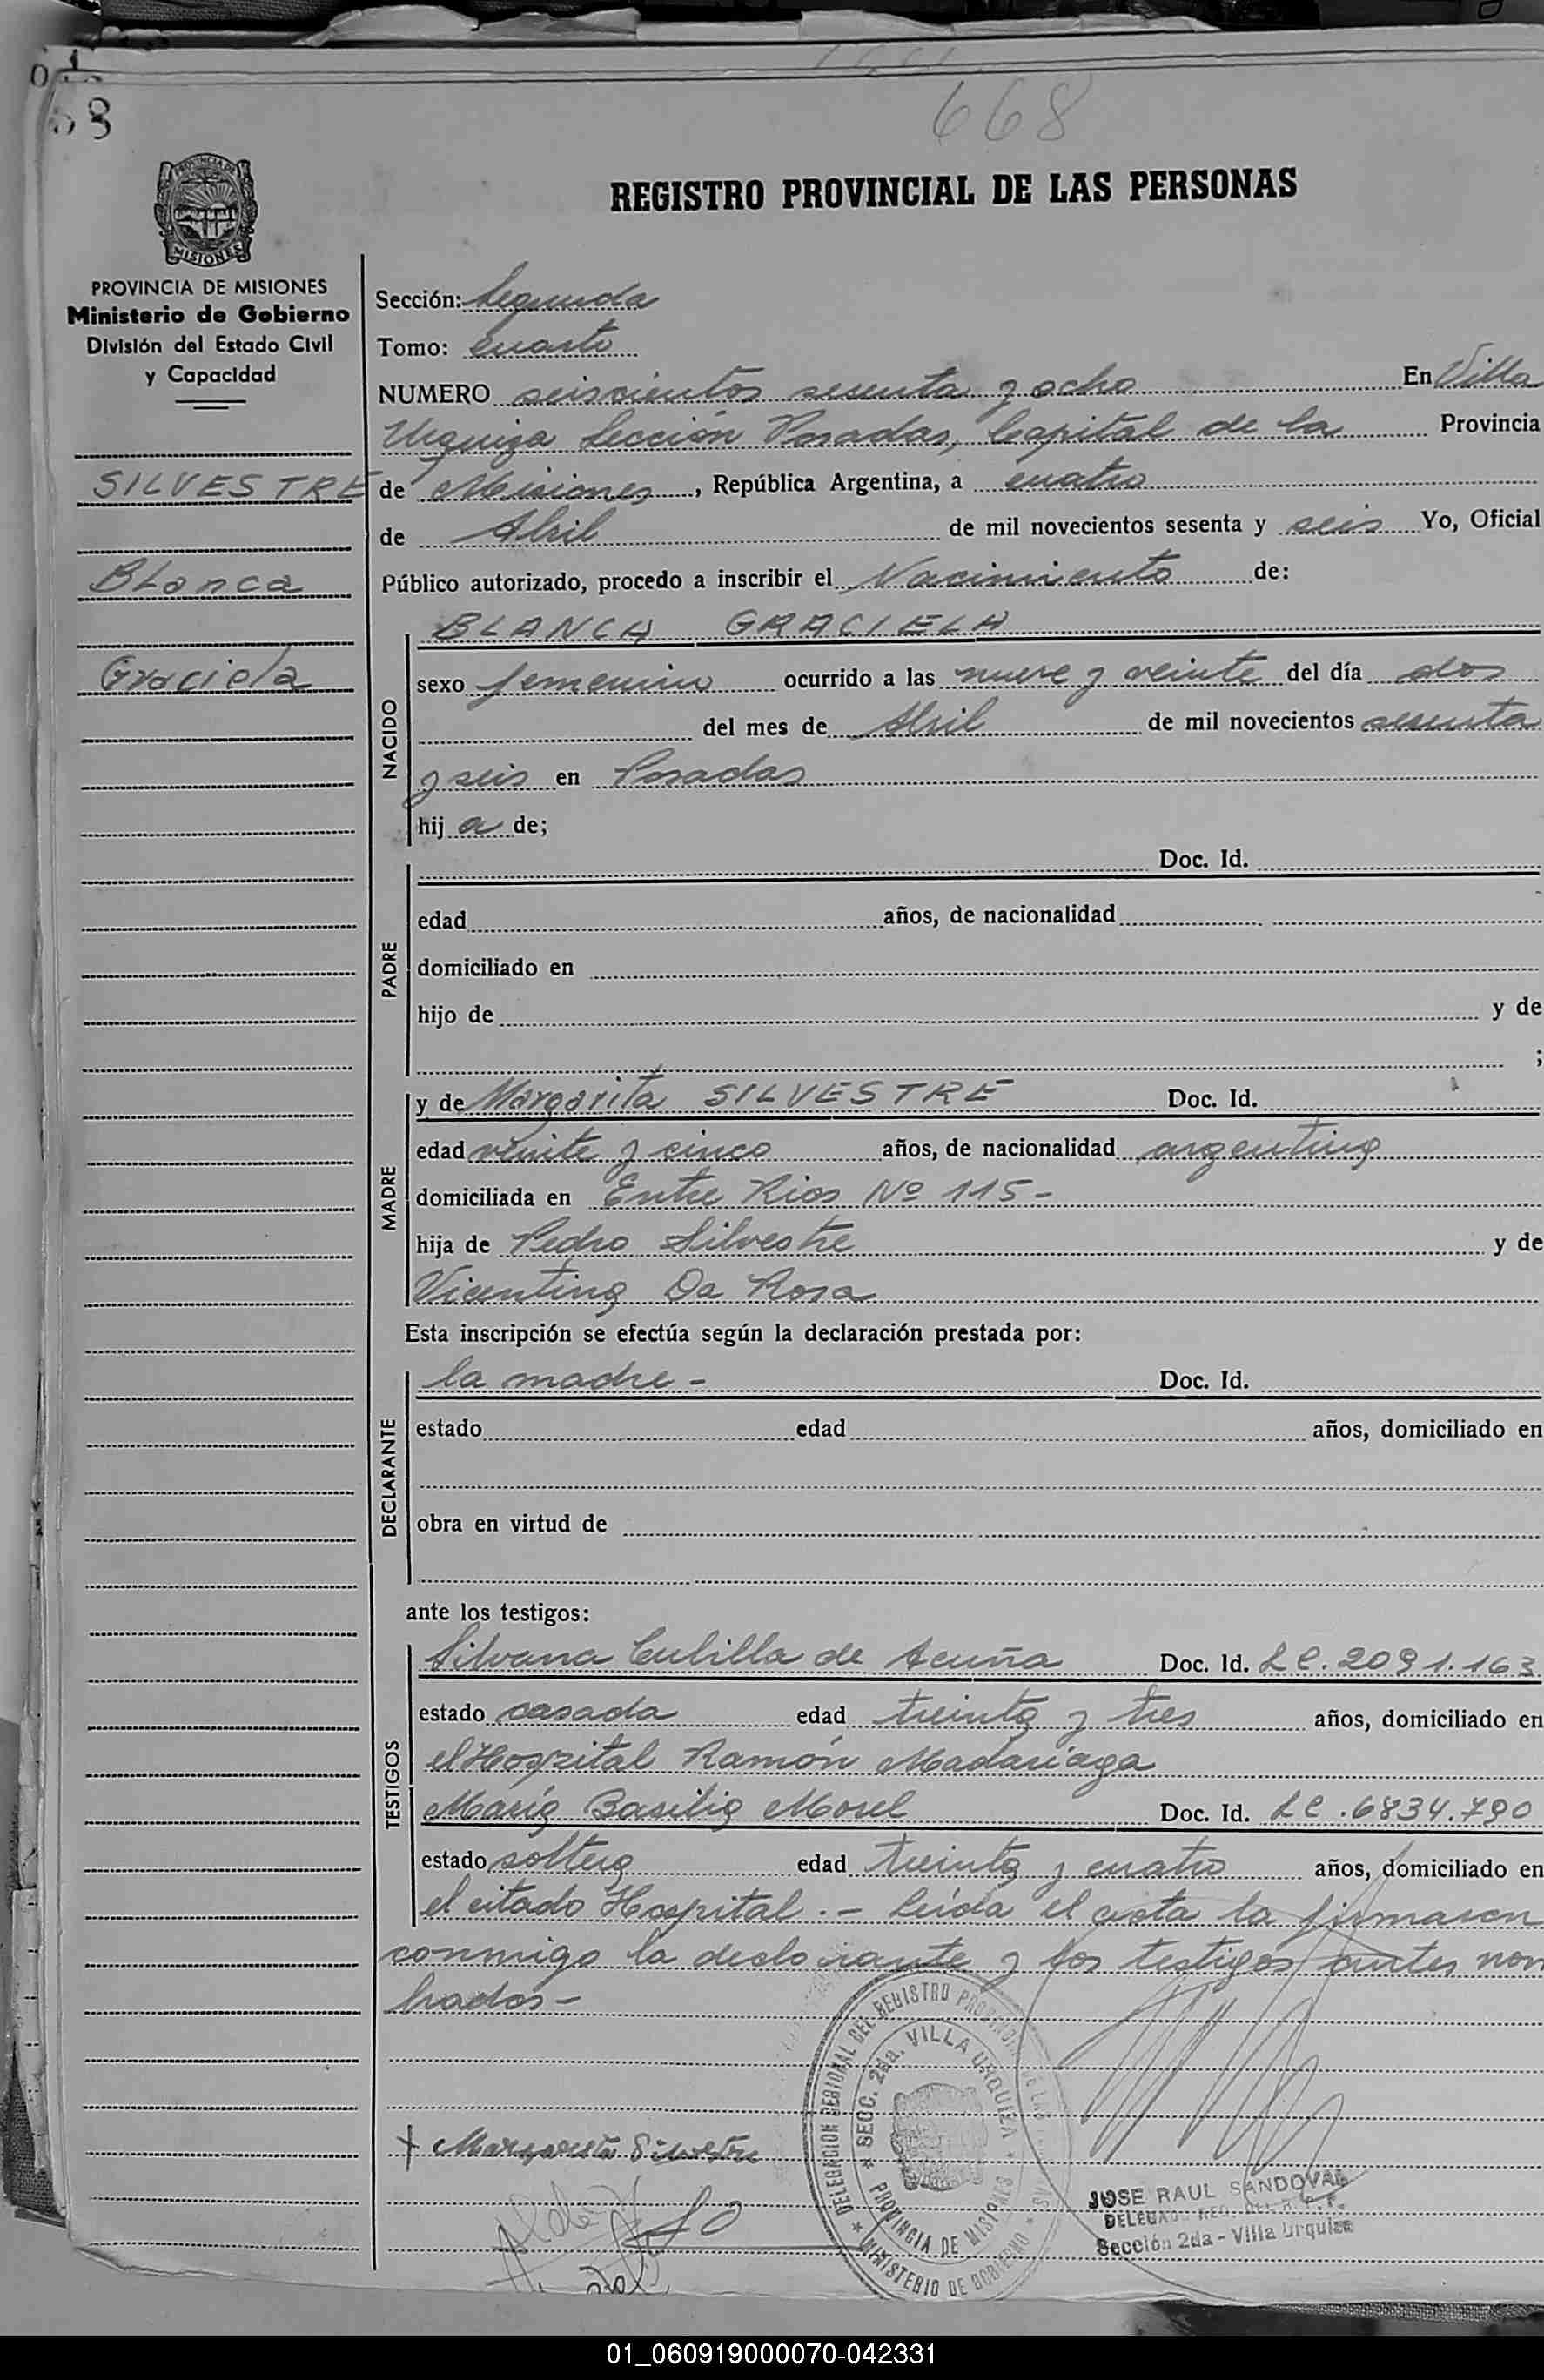 668
REGISTRO PROVINCIAL DE LAS PERSONAS
PROVINCIA DE MISIONES
Ministerio de Gobierno
División del Estado Civil
y Capacidad
SILVESTRE
Blanca
Graciela
Sección: Segunda
Tomo: cuarto
NUMERO seiscientos sesenta y ocho En Villa
Urquiza Sección Posadas, Capital de la Provincia
de Misiones, República Argentina, a cuatro
de Abril de mil novecientos sesenta y seis Yo, Oficial
Público autorizado, procedo a inscribir el Nacimiento de:
NACIDO
BLANCA GRACIELA
sexo femenino ocurrido a las nueve y veinte del día dos
del mes de Abril de mil novecientos sesenta
y seis en Posadas
hij a de;
PADRE
Doc. Id.
edad años, de nacionalidad
domiciliado en
hijo de y de
;
MADRE
y de Margarita SILVESTRE Doc. Id.
edad veinte y cinco años, de nacionalidad argentina
domiciliada en Entre Rios Nº 115-
hija de Pedro Silvestre y de
Vicentina Da Rosa
Esta inscripción se efectúa según la declaración prestada por:
DECLARANTE
la madre - Doc. Id.
estado edad años, domiciliado en
obra en virtud de
ante los testigos:
TESTIGOS
Silvana Cubilla de Acuña Doc. Id. LC. 2091.163
estado casada edad treinta y tres años, domiciliado en
el Hospital Ramón Madariaga
María Basilia Morel Doc. Id. LC. 6834.790
estado soltera edad treinta y cuatro años, domiciliado en
el citado Hospital.- Leída el acta la firmaron
conmigo la declarante y los testigos antes nom
brados-
Margarita Silvestre
DELEGACION REGIONAL DEL REGISTRO PROVINCIAL DE LAS PERSONAS
SECC. 2da. VILLA URQUIZA
PROVINCIA DE MISIONES
MINISTERIO DE GOBIERNO
JOSE RAUL SANDOVAL
DELEGADO REG. DEL R. P. P.
Sección 2da - Villa Urquiza
01_060919000070-042331